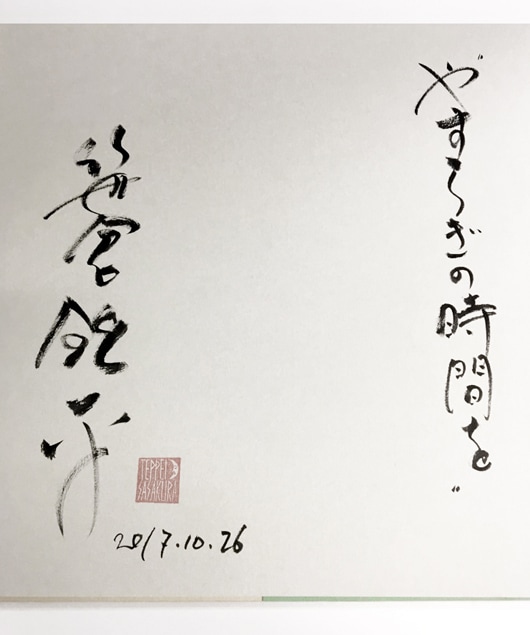 "やすらぎの時間を"
笹倉鉄平
TEPPEI
SASAKURA
2017.10.26